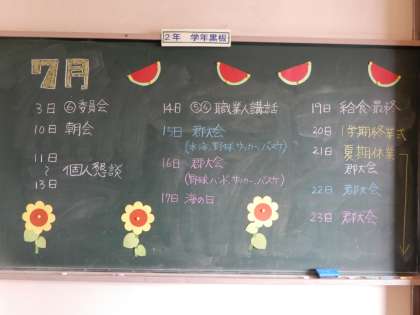 2年 学年黒板
7月
3日 ⑥委員会
10日 朝会
11日
〜 個人懇談
13日
14日 ⑤⑥ 職業人講話
15日 郡大会
(水泳、野球、サッカー、バスケ)
16日 郡大会
(野球、ハンド、サッカー、バスケ)
17日 海の日
19日 給食最終
20日 1学期終業式
21日 夏期休業
郡大会
22日 郡大会
23日 郡大会